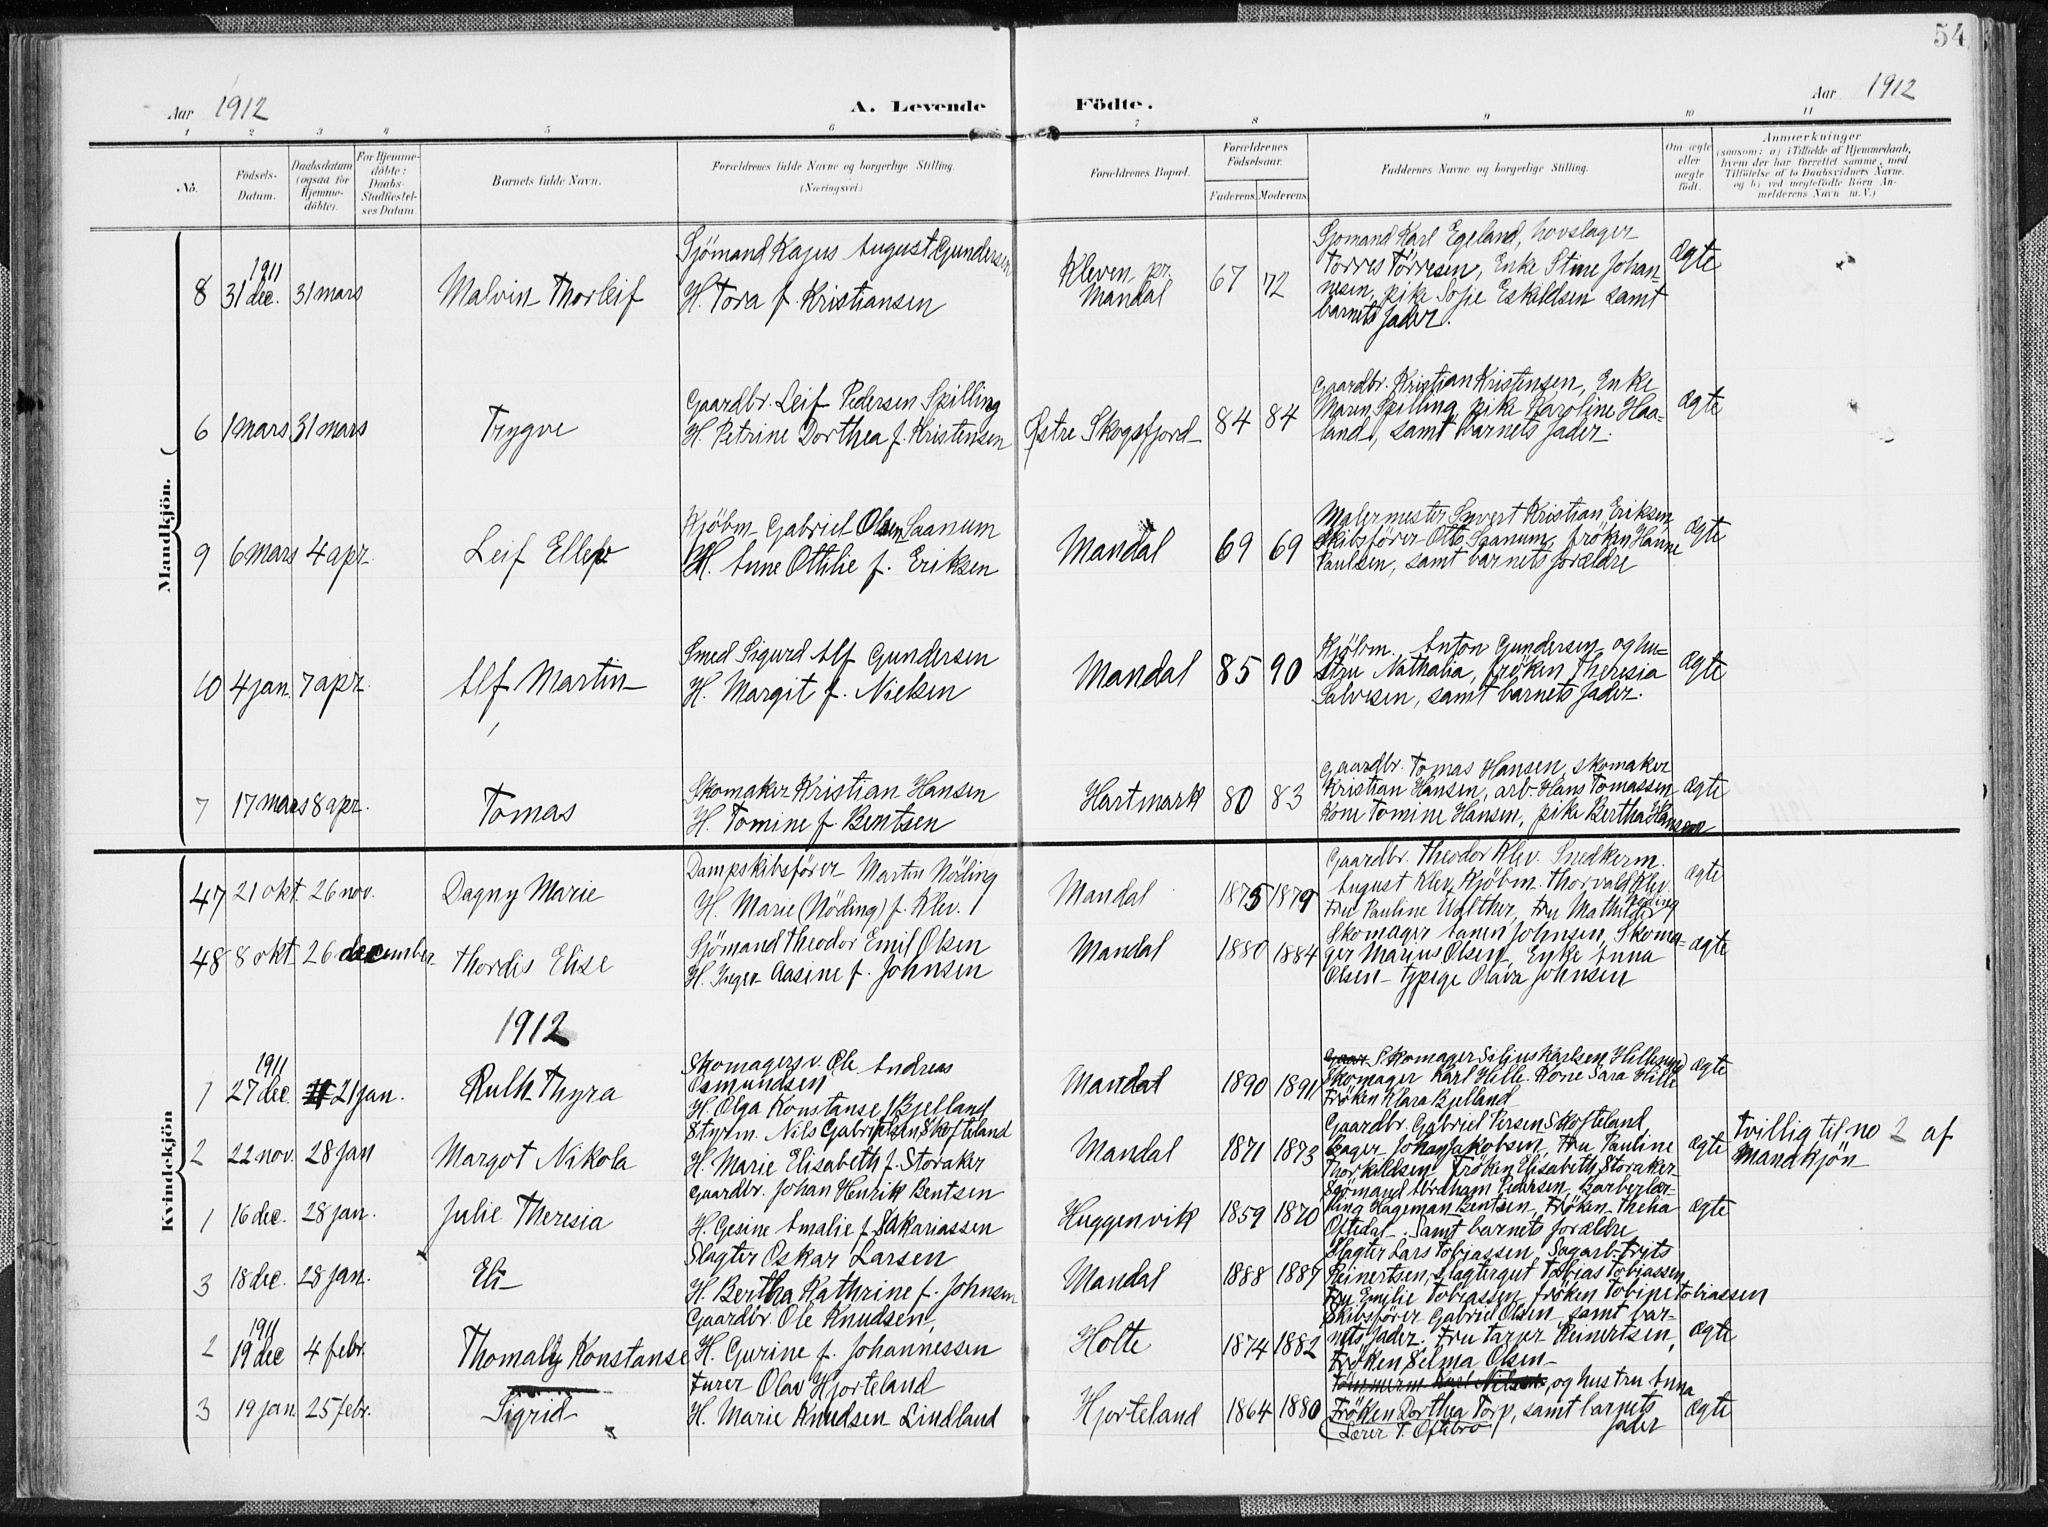 54
Aar 1912
A. Levende Födte.
Aar 1912
1 2 3 4 5 6 7 8 9 10 11
No.
Födsels-Datum.
Daabsdatum (ogsaa for Hjemme-döbte).
For Hjemme-döbte: Daabs-Stadfæstel-ses Datum.
Barnets fulde Navn.
Forældrenes fulde Navne og borgerlige Stilling.
(Næringsvei.)
Forældrenes Bopæl.
Forældrenes Födselsaar.
Faderens. Moderens.
Faddernes Navne og borgerlige Stilling.
Om ægte eller uægte födt.
Anmærkninger
(saasom: a) i Tilfælde af Hjemmedaab,
hvem der har forrettet samme, med
Tilföielse af to Daabsvidners Navne.
og b) ved uægtefödte Börn An-
melderens Navn m. V.)
Mandkjön.
8 1911 31 dec. 31 mars Malvin Thorleif
Sjömand Kajus August Gundersen
H. Tora f. Kristiansen
Kleven pr.
Mandal
67 72
Sjomand Karl Egeland, hovslager
Torres Törresen, Enke Stine Johan-
nesen, pike Sofie Eskildsen samt
barnets fader.
ægte
6 1 mars 31 mars Trygve
Gaardbr. Leif Pedersen Spilling
H. Petrine Dorthea f. Kristensen
Østre Skogsfjord 84 84
Gaardbr. Kristian Kristensen, Enke
Maren Spilling, pike Karoline Haa-
land, samt barnets fader.
ægte
9 6 mars 4 apr. Leif
Kjöbm. Gabriel Olsen Saanum
H. Anne Ottilie f. Eriksen
Mandal 69 69
Malermester Sivert Kristian Eriksen
Skibsförer Otto Saanum, fröken Hanne
Paulsen, samt barnets forældre
ægte
10 4 jan. 7 apr. Alf Martin
Smed Sigurd Alf Gundersen
H. Margit f. Nielsen
Mandal 85 90
Kjöbm. Anton Gundersen og hu-
stru Nathalia, fröken Theresia
Salvesen, samt barnets fader.
ægte
7 17 mars 8 apr. Tomas
Skomaker Kristian Hansen
H. Tomine f. Bentsen
Hartmark 80 83
Gaardbr. Tomas Hansen, skomaker
Kristian Hansen, arb. Hans Tomassen
Kone Tomine Hansen, pike Bertha Hansen
ægte
Kvindekjön
47 21 okt. 26 nov. Dagny Marie
Dampskibsförer Martin Nöding
H. Marie (Nöding) f. Klev.
Mandal 1875 1879
Gaardbr. Theodor Klev. Snedkerm.
August Klev, Kjöbm. Thorvald Klev.
Fru Pauline Walther, Fru Mathilde Nöding
ægte
48 8 okt. 26 december Thordis Elise
Sjömand Theodor Emil Olsen
H. Inger Aasine f. Johnsen
Mandal 1880 1884
Skomager Johnsen, Skoma-
ger Marius Olsen, Enke Anna
Olsen - Olava Johnsen
ægte
1912
1 1911 27 dec. 21 jan. Ruth Thyra
Skomagersv. Ole Andreas
Osmundsen
H. Olga Konstanse f. Bjelland
Mandal 1890 1891
Skomager Karlsen Hille
Skomager Karl Hille. Kone Sara Hille
Fröken Klara Bjelland
ægte
2 22 nov. 28 jan Margot Nikola
Styrm. Nils Gabrielsen Skofteland
H. Marie Elisabeth f. Storaker
Mandal 1871 1873
Gaardbr. Gabriel Persen Skofteland,
Bager Johan Jakobsen, Fru Pauline
Thorkildsen Fröken Elisabeth Storaker
ægte
Tvillig til no 2 af
Mandkjön
1 16 dec. 28 jan. Julie Theresia
Gaardbr. Johan Henrik Bentsen
H. Gesine Amalie f. Sakariassen
Huggenvik 1859 1870
Sjömand Abraham Pedersen, Barberlær-
ling Hageman Bentsen, Fröken Thelia
Oftedal. Samt barnets forældre
ægte
3 18 dec. 28 jan. Eli
Slagter Oskar Larsen
H. Bertha Kathrine f. Johnsen
Mandal 1888 1887
Slagter Lars Tobiassen, Sagarb. Frits
Reinertsen, Slagtergut Tobias Tobiassen
Fru Emilie Tobiassen Fröken Tobine Tobiassen
2 1911 19 dec 4 febr. Konstanse
Gaardbr. Ole Knudsen,
H. Gurine f. Johannessen
Holte 1874 1882
Skibsförer Gabriel Olsen, samt bar-
nets fader. Fru Reinertsen,
Fröken Selma Olsen
ægte
3 19 jan. 25 febr. Sigrid
Furer Olav Hjorteland
H. Marie Knudsen Lindland
Hjorteland 1864 1880
og hustru Anna
Fröken Dorthea Torp, samt barnets
fader
(Lærer T. Oftebro)
ægte